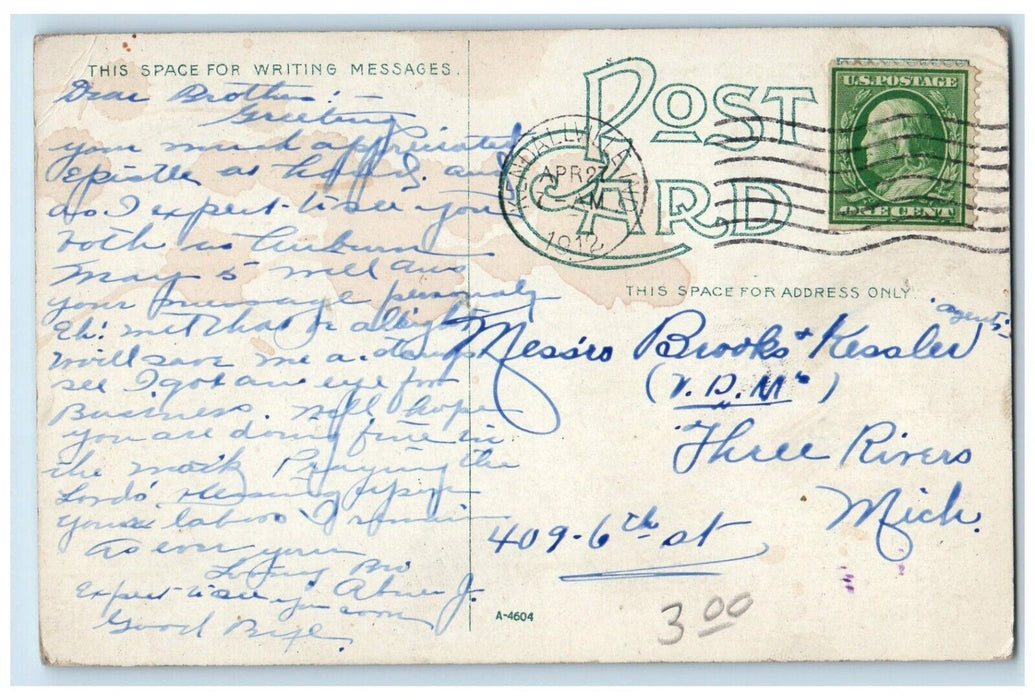 THIS SPACE FOR WRITING MESSAGES.
Dear Brother: —
Greeting
your much appreciated
Epistle at hand, and
as I expect to see you
both at Auburn
May 5 will ans
your message personaly
Eh! met that be allright
will save me a stamp
see I got an eye for
Business. Well hope
you are doing fine in
the work Praying the
Lords' Blessing upon
your labors I remain
As ever your
Loving Bro
Abner J.
Expect to see you soon
Good Bye
POST CARD
KENDALLVILLE, IND.
APR 2
AM
1912
U.S. POSTAGE
ONE CENT
THIS SPACE FOR ADDRESS ONLY.
Messrs Brooks & Kessler "agents"
(V.D.M's)
Three Rivers
Mich.
409-6th st
A-4604
3 00